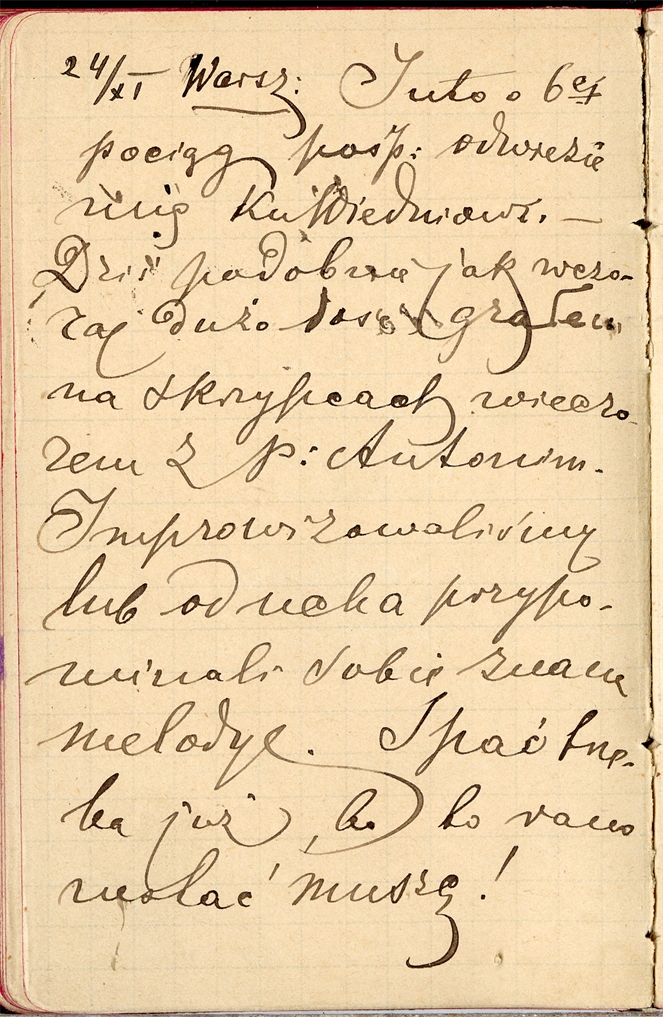 24/XI Warsz: Juto o 6ej
pociąg posp: odwiezie
mię ku Wiedniowi. —
Dziś podobnie jak wczo-
raj dużo dość grałem
na skrzypcach wieczo-
rem z p: Antonim.
Improwizowaliśmy
lub od ucha przypo-
minali sobie znane
melodye. Spać trze-
ba już, bo to rano
wstać muszę!